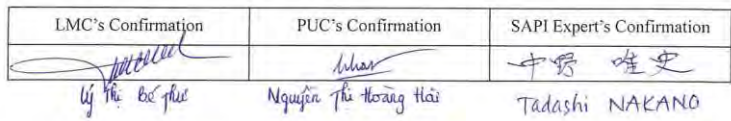 LMC's Confirmation PUC's Confirmation SAPI Expert's Confirmation
中野 唯史
Lý Thị Bé Như Nguyễn Thị Hoàng Hải Tadashi NAKANO